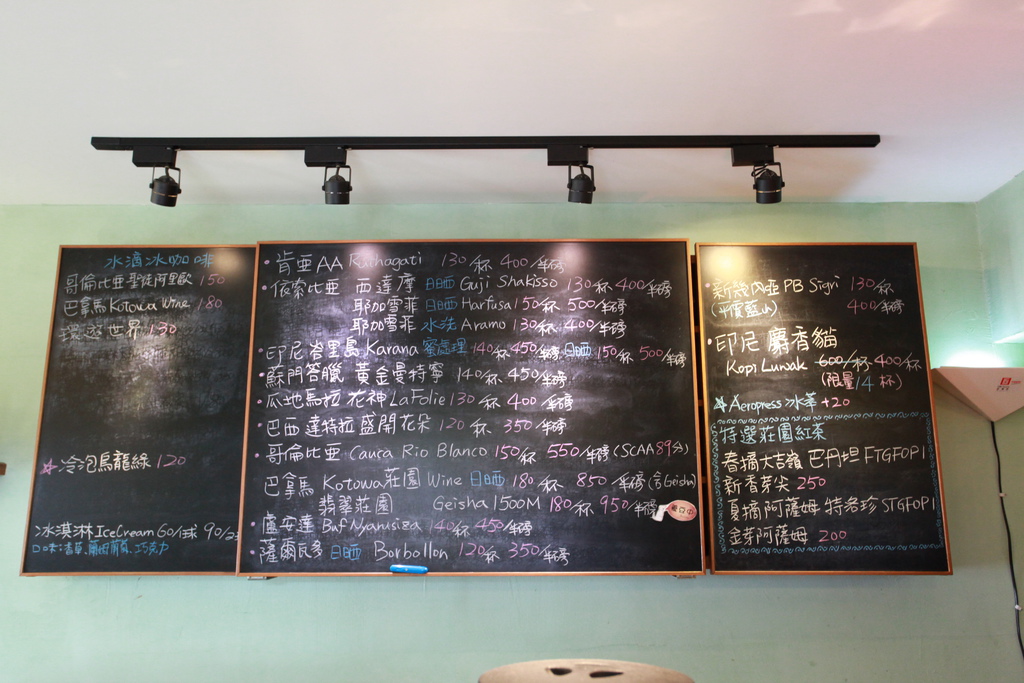 冰滴冰咖啡
哥倫比亞 聖徒阿里歐 150
巴拿馬 Kotowa Wine 180
環遊世界 130
☆冷泡烏龍綠 120
冰淇淋 IceCream 60/球 90/2球
口味:香草, 巧克力
·肯亞AA 130/杯 400/半磅
·依索比亞 西達摩 日晒 Guji Shakisso 130/杯 400/半磅
耶加雪菲 日晒 Harfusa 150/杯 500/半磅
耶加雪菲 水洗 Aramo 130/杯 400/半磅
·印尼 峇里島 Karana 蜜處理 140/杯 450/半磅 日晒 150/杯 500/半磅
·蘇門答臘 黃金曼特寧 140/杯 450/半磅
·瓜地馬拉 花神 LaFolie 130/杯 400/半磅
·巴西 達特拉 盛開花朵 120/杯 350/半磅
·哥倫比亞 Cauca Rio Blanco 150/杯 550/半磅 (SCAA 89分)
巴拿馬 Kotowa莊園 Wine 日晒 180/杯 850/半磅 (含Geisha)
翡翠莊園 Geisha 1500M 180/杯 950/半磅
·盧安達 Buf Nyarusiza 140/杯 450/半磅
·薩爾瓦多 日晒 Borbollon 120/杯 350/半磅
·新幾內亞 PB Sigri 130/杯
(平價藍山) 400/半磅
·印尼 麝香貓
Kopi Luwak 600/杯 400/杯
(限量14杯)
☆Aeropress 冰革 +20
特選莊園紅茶
春摘大吉嶺 巴丹坦 FTGFOP1
新香芽尖 250
夏摘阿薩姆 特洛珍 STGFOP1
金芽阿薩姆 200